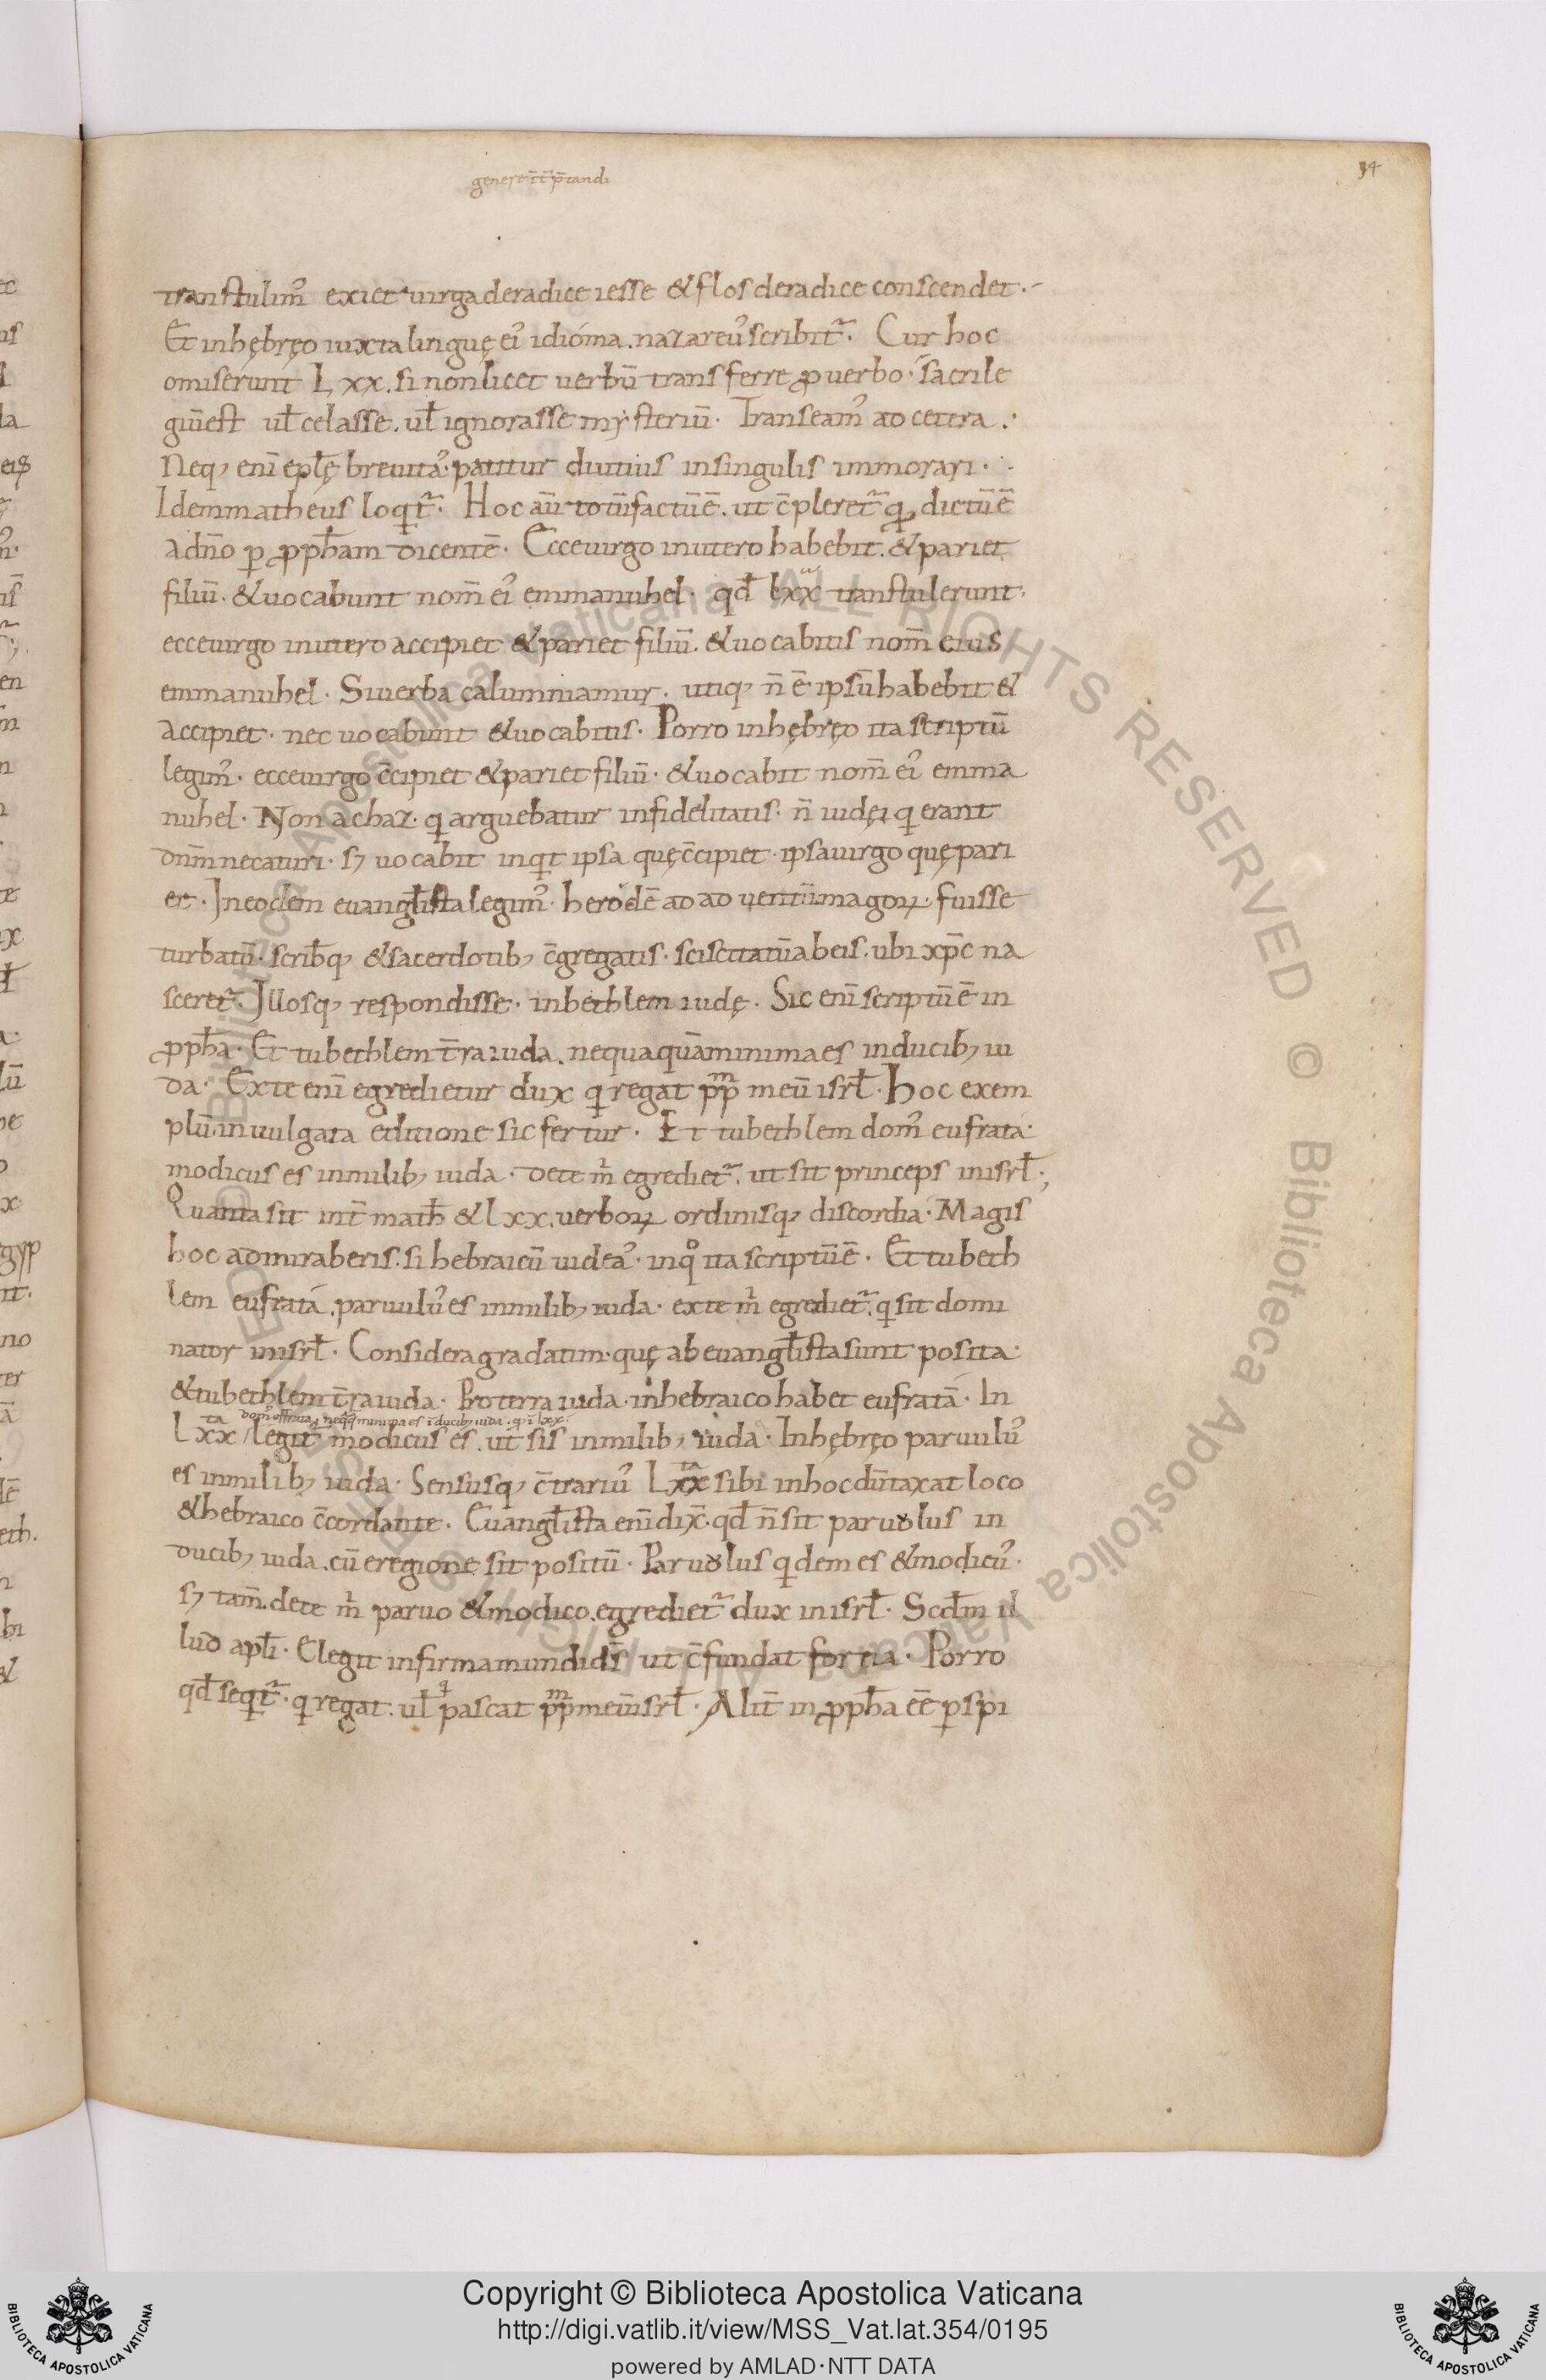 genere īt̄ p̄tandi
34
transtulim᾽ exiet uirga de radice iesse & flos de radice conscendet.
Et in hębręo iuxta linguę ei᾽ idióma. nazareu᾽ scribit᷑. Cur hoc
omiserunt Lxx. si non licet uerbū transferre ꝓ uerbo. sacrile
giū est uł celasse. uł ignorasse mysteriū. Transeam᾽ ad cetera.
Neq; eni epłę breuita᾽ patitur diutius in singulis immorari.
Idem matheus loqt᷑. Hoc aū totū factū ē. ut c̄pleret᷑ qđ dictū ē
a dn̄o ꝑ ꝓph̄am dicentē. Ecce uirgo in utero habebit. & pariet
filiū. & uocabunt nom̄ ei᾽ emmanuhel. qđ lxx transtulerunt.
ecce uirgo in utero accipiet & pariet filiū. & uocabitis nom̄ eius
emmanuhel. Si uerba calumniamur. utiq; n̄ ē ipsū habebit &
accipiet. nec uocabunt & uocabitis. Porro in hębręo ita scriptū
legim᾽. ecce uirgo c̄cipiet & pariet filiū. & uocabit nom̄ ei᾽ emma
nuhel. Non achaz. qi arguebatur infidelitatis. n̄ iudęi qi erant
dnm̄ necaturi. sꝫ uocabit inqt ipsa quę c̄cipiet. ipsa uirgo quę pari
et. In eodem euangłista legim᾽. herodē ad aduentū magoꝝ fuisse
turbatū. scribq; & sacerdotib; c̄gregatis. sciscitatū ab eis. ubi xp̄c na
sceret᷑. Illosq; respondisse. in bethlem iudę. Sic eni scriptū ē in
ꝓph̄a. Et tu bethlem t̄ra iuda. nequaquā minima es in ducib; iu
da. Ex te eni egredietur dux qi regat pp̄m meū isrł. Hoc exem
plū in uulgata editione sic fertur. Et tu bethlem dom᾽ eufrata
modicus es in milib; iuda. de te m̄ egrediet᷑. ut sit princeps in isrł;
Quanta sit int̄ math & lxx. uerboꝝ ordinisq; discordia. Magis
hoc admiraberis. si hebraicū uidea᾽. in qo ita scriptū ē. Et tu beth
lem eufrata. paruulu᾽ es in milib; iuda. ex te m̄ egrediet᷑. qi sit domi
nator in isrł. Considera gradatim. quę ab euangłista sunt posita
& tu bethlem t̄ra iuda. Pro terra iuda. in hebraico habet eufratā. In
dom᾽ effrata neqq̄ minima es ī ducib; iuda. ꝓ ī lxx
Lxxta legit᷑ modicus es. ut sis in milib; iuda. In hębręo paruulu᾽
es in milib; iuda. Sensusq; c̄trariu᾽ Lxxta sibi in hoc dūtaxat loco
& hebraico c̄cordante. Euangłista eni dix̄. qđ n̄ sit paruolus in
ducib; iuda. cū e regione sit positū. Paruolus qidem es & modicu᾽.
sꝫ tam̄. de te m̄ paruo & modico egrediet᷑ dux in isrł. Scdm̄ il
lud apłi. Elegit infirma mundi ds̄ ut c̄fundat fortia. Porro
qđ seqt᷑. qi regat. uł qi pascat pp̄m meū isrł. Alit̄ in ꝓph̄a eē ꝑspi
Copyright © Biblioteca Apostolica Vaticana
http://digi.vatlib.it/view/MSS_Vat.lat.354/0195
powered by AMLAD·NTT DATA
BIBLIOTECA APOSTOLICA VATICANA
BIBLIOTECA APOSTOLICA VATICANA